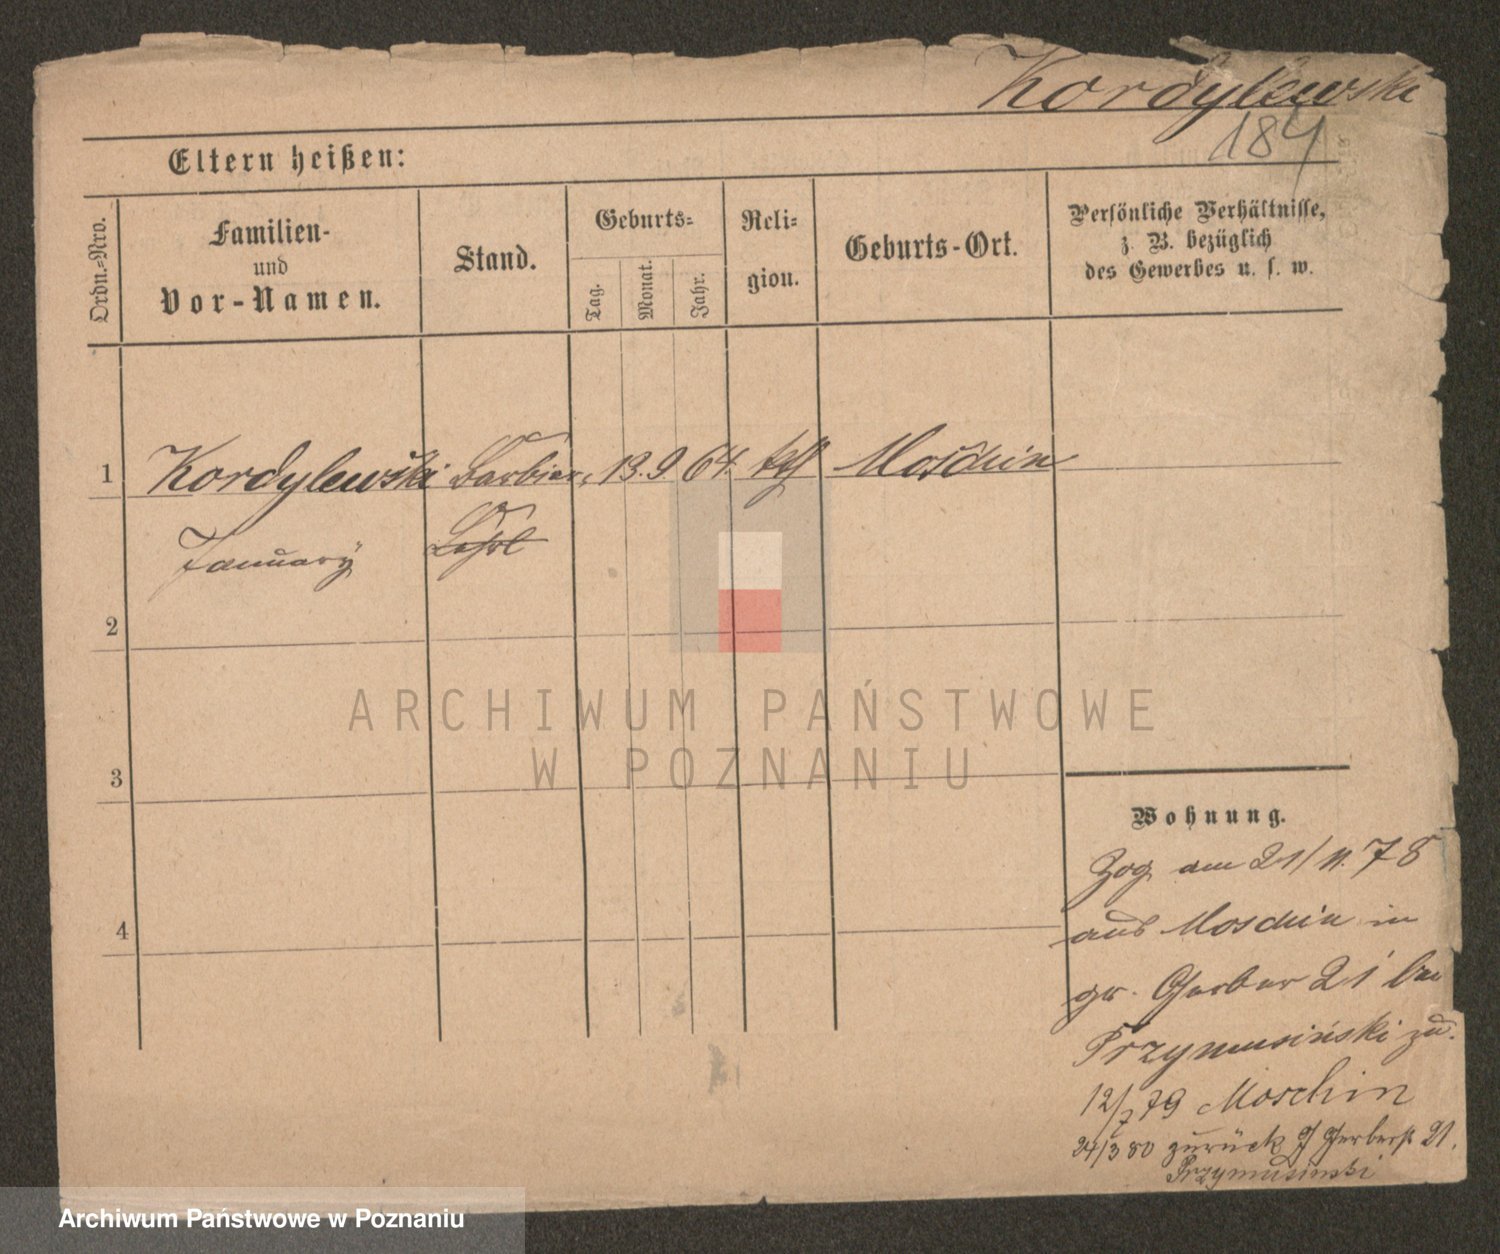 Kordylewski
184
Eltern heißen:
Ordn.-Nro.
Familien-
und
Vor-Namen.
Stand.
Geburts-
Tag.
Monat.
Jahr.
Reli-
gion.
Geburts-Ort.
Persönliche Verhältnisse,
z. B. bezüglich
des Gewerbes u. s. w.
1 Kordylewski Barbier 13. 9. 64. kth Moschin
January Lehrl
2
3
4
Wohnung.
Zog am 21/11. 78
aus Moschin in
gr. Gerber 21 bei
Przymusiński
12/7 79 Moschin
24/3 80 zurück Gerberst 21.
Przymusinski
ARCHIWUM PAŃSTWOWE
W POZNANIU
Archiwum Państwowe w Poznaniu